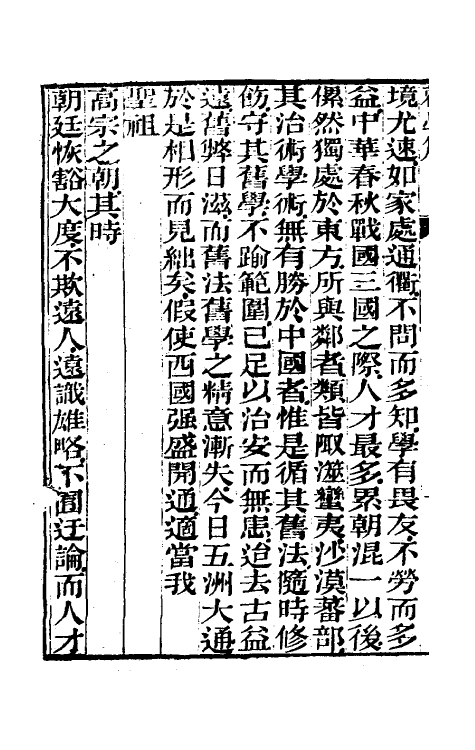 境尤速如家處通衢不問而多知學有畏友不勞而多
益中華春秋戰國三國之際人才最多累朝混一以後
儽然獨處於東方所與鄰者類皆陬澨蠻夷沙漠蕃部
其治術學術無有勝於中國者惟是循其舊法隨時修
飭守其舊學不踰範圍已足以治安而無患迨去古益
遠舊弊日滋而舊法舊學之精意漸失今日五洲大通
於是相形而見絀矣假使西國强盛開通適當我
聖祖
高宗之朝其時
朝廷恢豁大度不欺遠人遠識雄略不囿迂論而人才